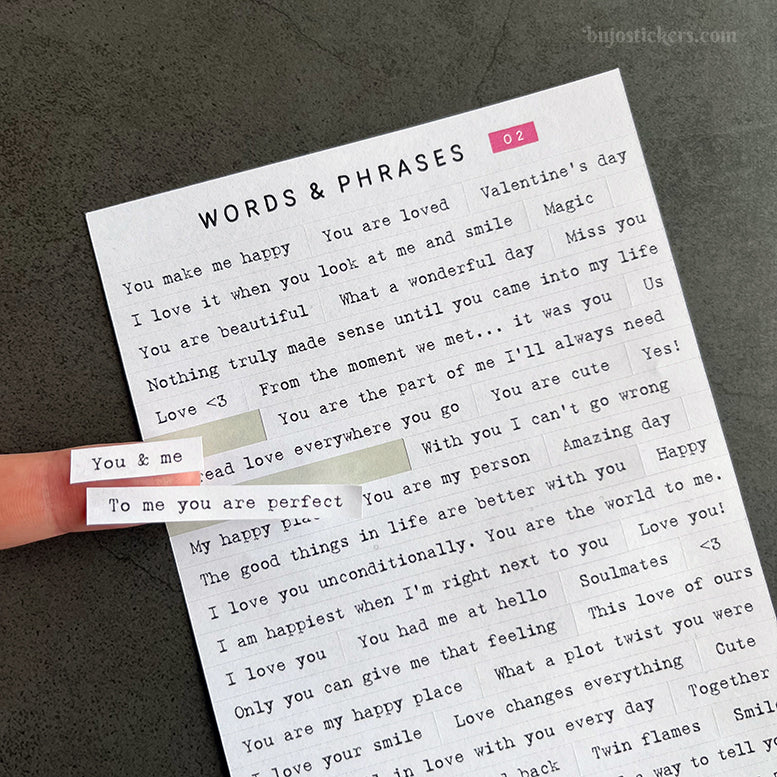 bujostickers.com
WORDS & PHRASES 02
You make me happy You are loved Valentine's day
I love it when you look at me and smile Magic
You are beautiful What a wonderful day Miss you
Nothing truly made sense until you came into my life
Love <3 From the moment we met... it was you Us
You are the part of me I'll always need
read love everywhere you go You are cute Yes!
You & me
With you I can't go wrong
To me you are perfect
My happy You are my person Amazing day
The good things in life are better with you Happy
I love you unconditionally. You are the world to me.
I am happiest when I'm right next to you Love you!
I love you You had me at hello Soulmates <3
Only you can give me that feeling This love of ours
You are my happy place What a plot twist you were
I love your smile Love changes everything Cute
in love with you every day Together
back Twin flames Smile
way to tell